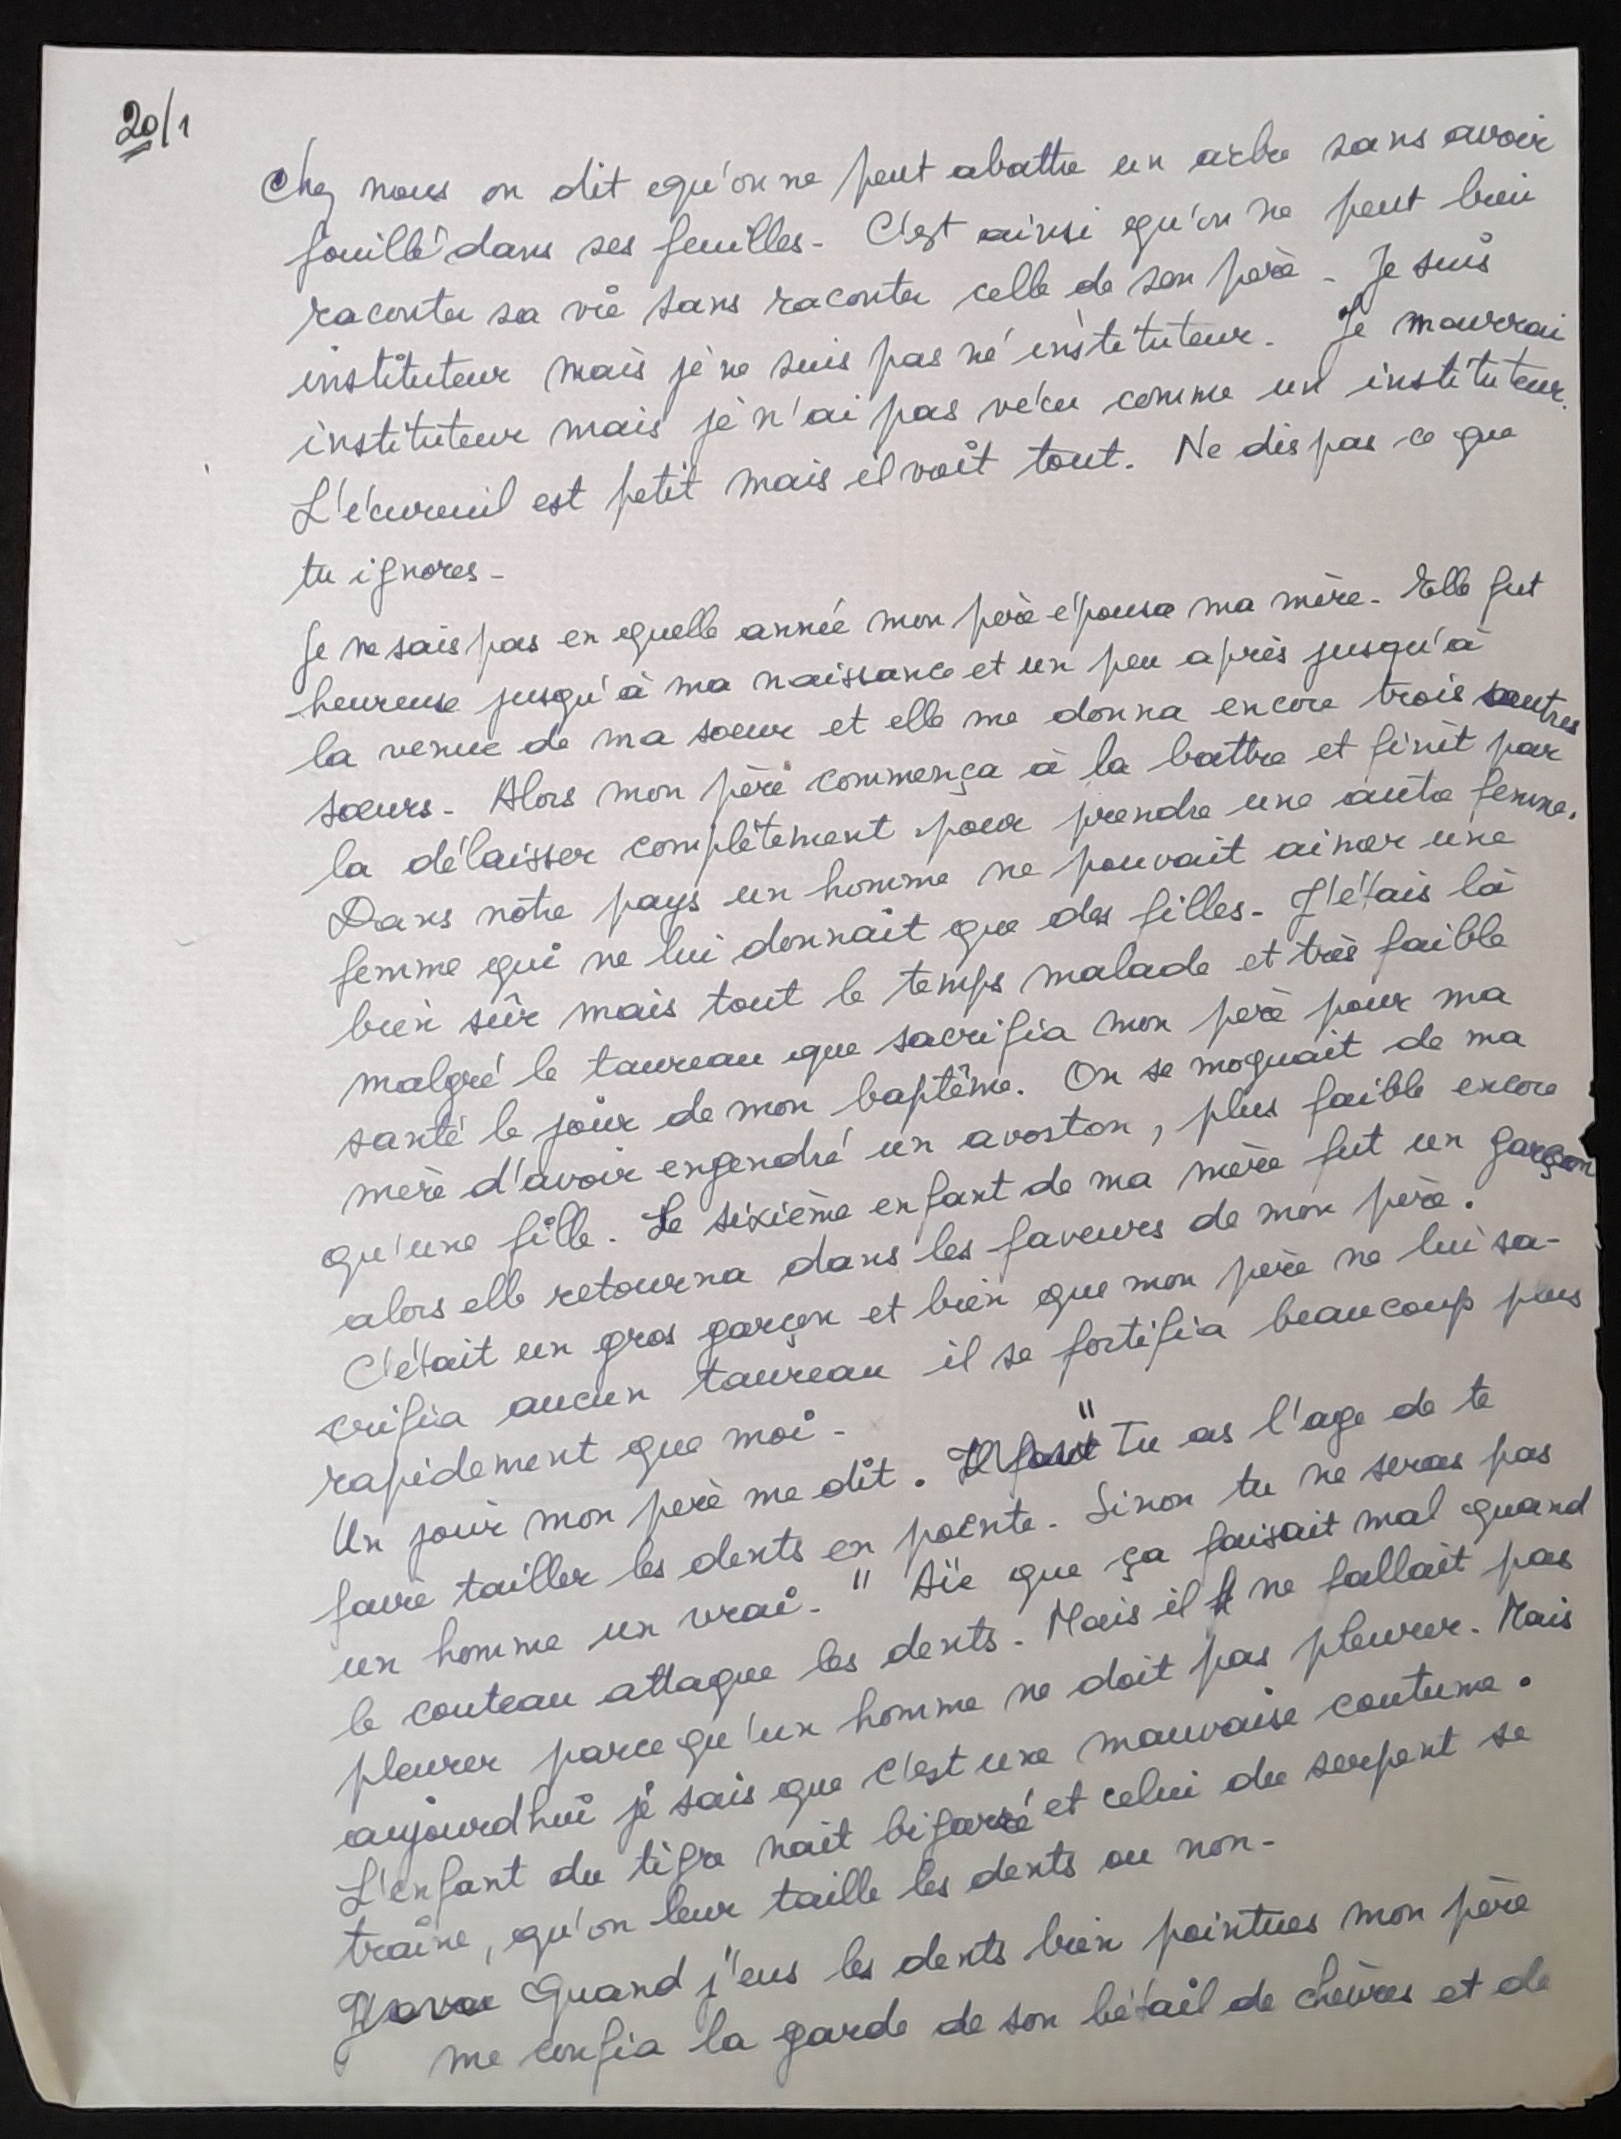 20/1
Chez nous on dit qu'on ne peut abattre un arbre sans avoir
fouillé dans ses feuilles - C'est ainsi qu'on ne peut bien
raconter sa vie sans raconter celle de son père - Je suis
instituteur mais je ne suis pas né instituteur - Je mourrai
instituteur mais je n'ai pas vécu comme un instituteur.
L'écureuil est petit mais il voit tout. Ne dis pas ce que
tu ignores -
Je ne sais pas en quelle année mon père épousa ma mère - Elle fut
heureuse jusqu'à ma naissance et un peu après jusqu'à
la venue de ma soeur et elle me donna encore trois autres
soeurs - Alors mon père commença à la battre et finit par
la délaisser complètement pour prendre une autre femme.
Dans notre pays un homme ne pouvait aimer une
femme qui ne lui donnait que des filles - J'étais là
bien sûr mais tout le temps malade et très faible
malgré le taureau que sacrifia mon père pour ma
santé le jour de mon baptême. On se moquait de ma
mère d'avoir engendré un avorton, plus faible encore
qu'une fille. Le sixième enfant de ma mère fut un garçon
alors elle retourna dans les faveurs de mon père.
C'était un gros garçon et bien que mon père ne lui sa-
crifia aucun taureau il se fortifia beaucoup plus
rapidement que moi -
Un jour mon père me dit. Il faut " Tu as l'age de te
faire tailler les dents en pointe - Sinon tu ne seras pas
un homme un vrai - " Aïe que ça faisait mal quand
le couteau attaque les dents - Mais il ne fallait pas
pleurer parce qu'un homme ne doit pas pleurer - Mais
aujourd'hui je sais que c'est une mauvaise coutume.
L'enfant du tigre nait bigarré et celui du serpent se
traîne, qu'on leur taille les dents ou non -
Quand j'eus les dents bien pointues mon père
me confia la garde de son bétail de chèvres et de